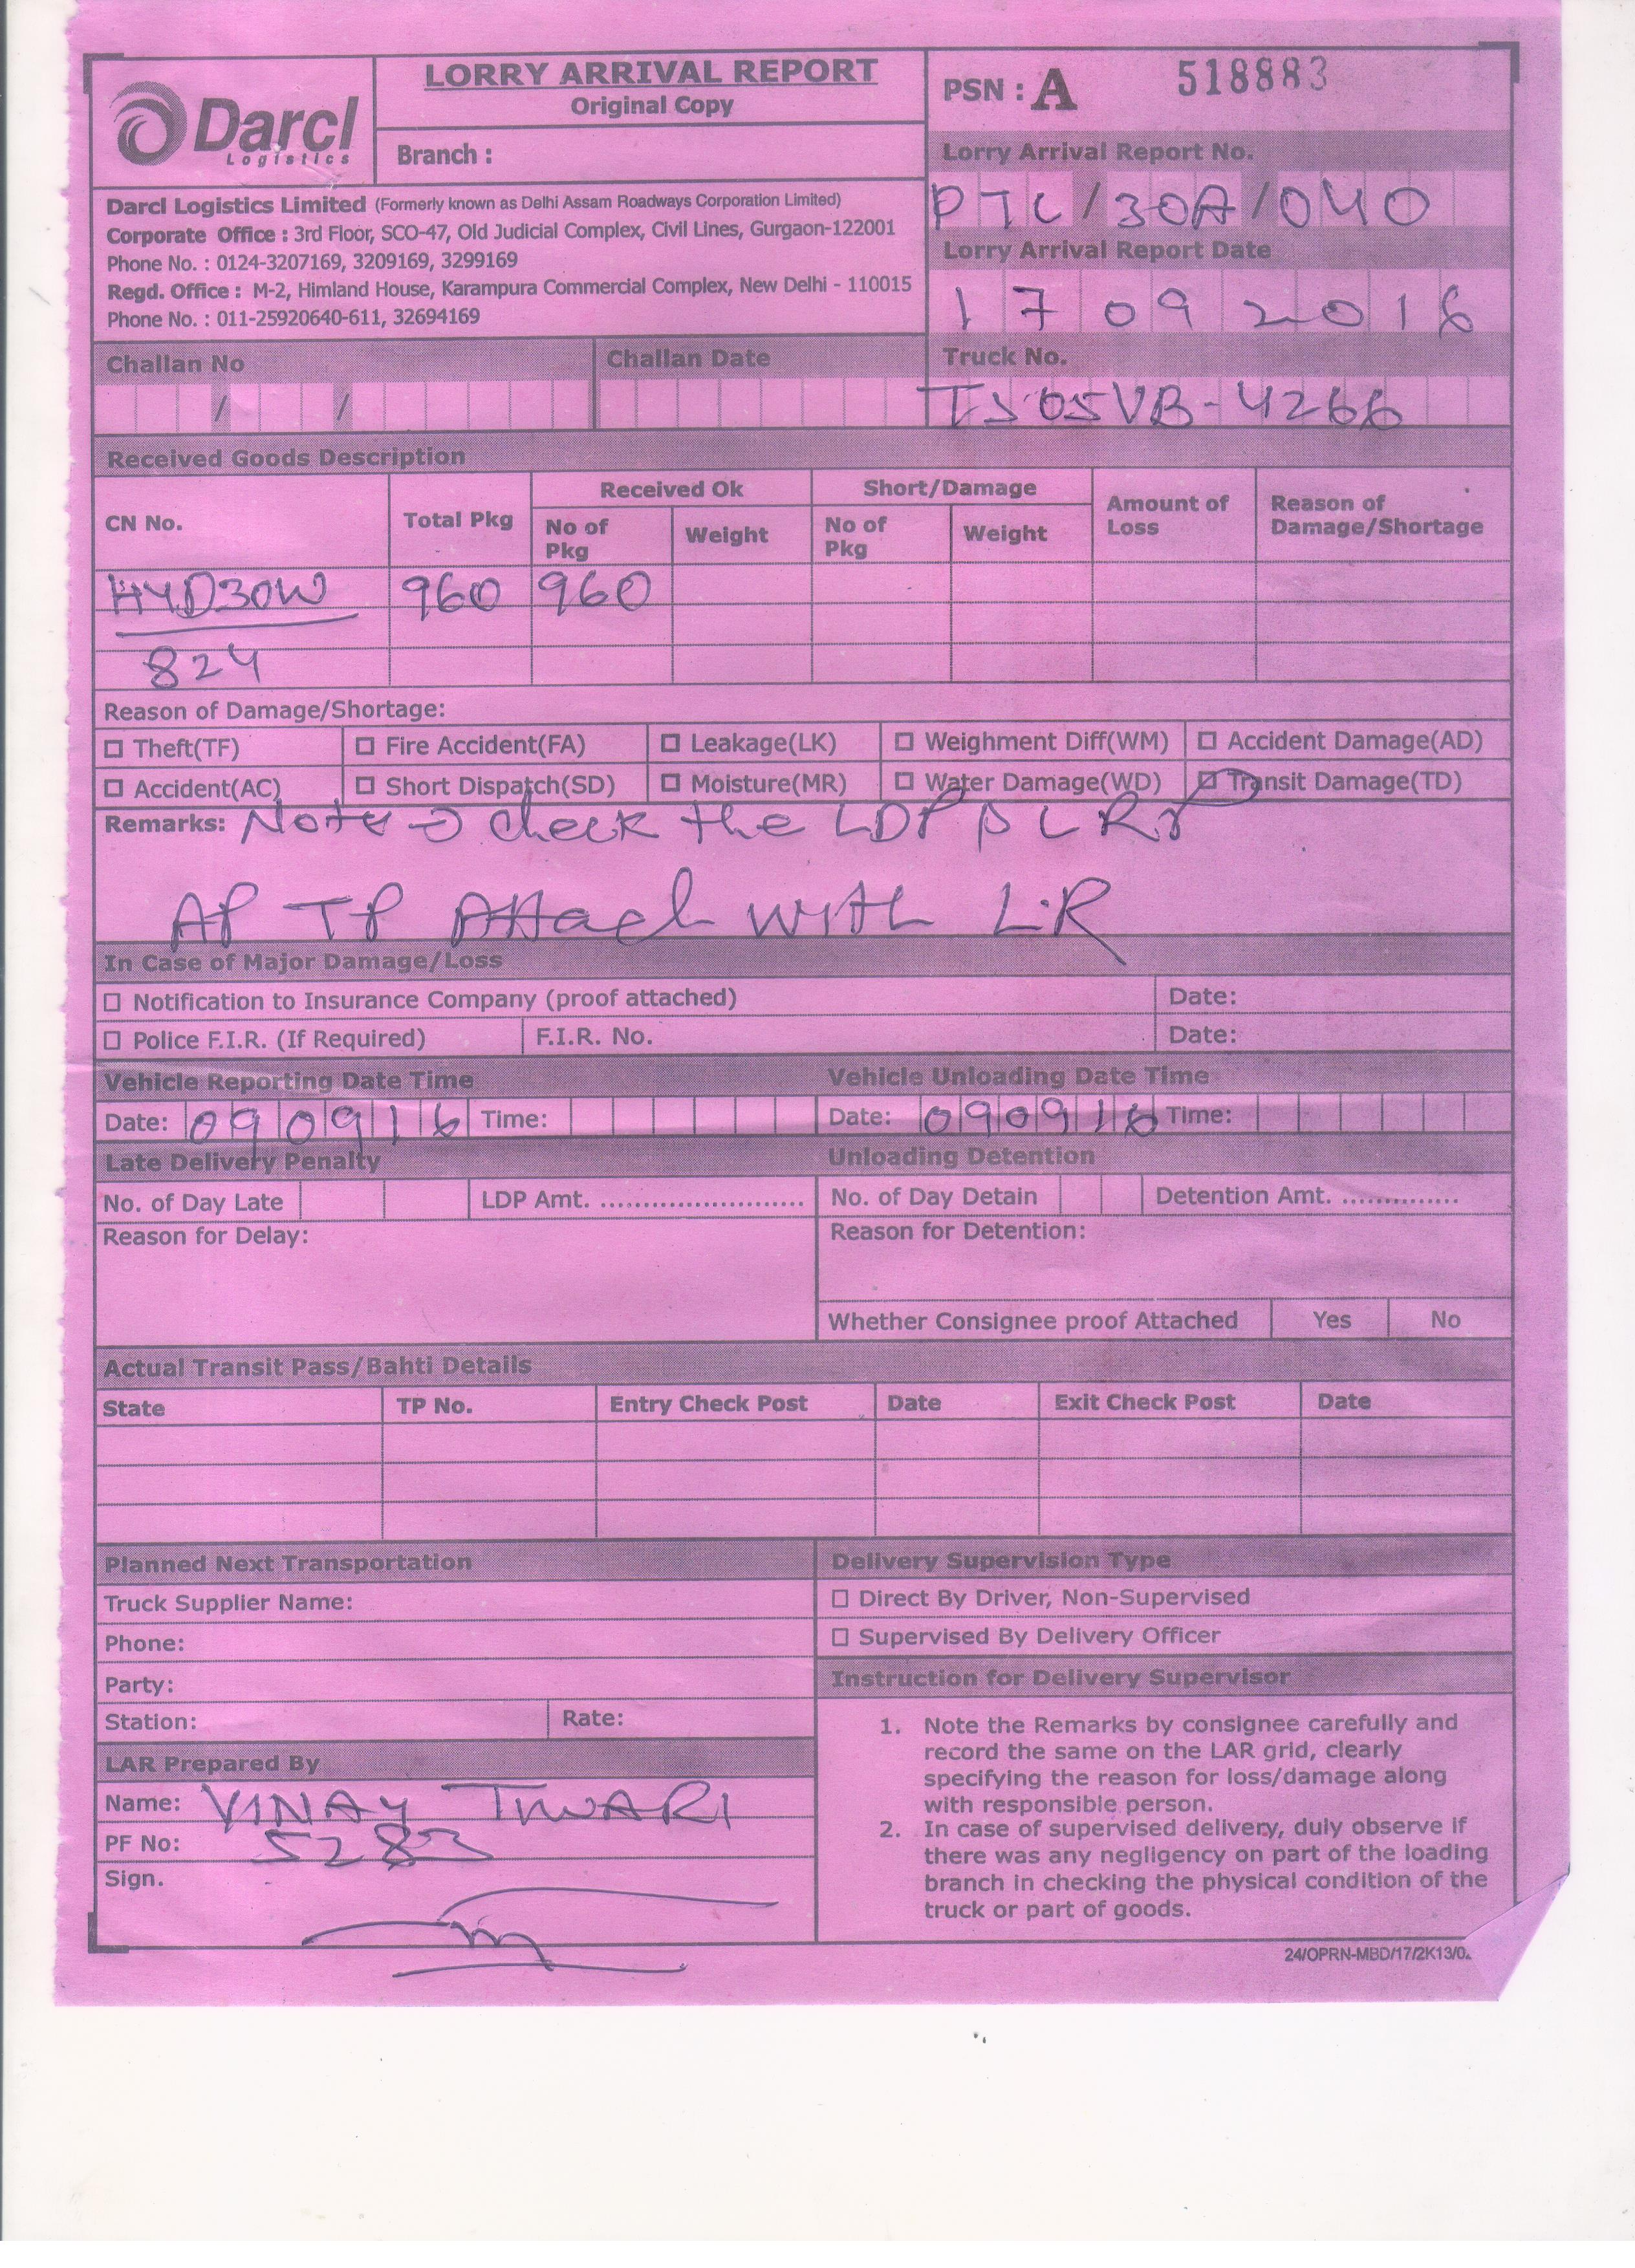 Darcl
Logistics
LORRY ARRIVAL REPORT
Original Copy
Branch :
PSN : A 518883
Lorry Arrival Report No.
PTC/30A/040
Lorry Arrival Report Date
17 09 2016
Darcl Logistics Limited (Formerly known as Delhi Assam Roadways Corporation Limited)
Corporate Office : 3rd Floor, SCO-47, Old Judicial Complex, Civil Lines, Gurgaon-122001
Phone No. : 0124-3207169, 3209169, 3299169
Regd. Office : M-2, Himland House, Karampura Commercial Complex, New Delhi - 110015
Phone No. : 011-25920640-611, 32694169
Challan No Challan Date Truck No.
/ / TS05VB-4266
Received Goods Description
CN No. Total Pkg Received Ok Short/Damage Amount of Loss Reason of Damage/Shortage
No of Pkg Weight No of Pkg Weight
HYD30W 960 960
824
Reason of Damage/Shortage:
Theft(TF) Fire Accident(FA) Leakage(LK) Weighment Diff(WM) Accident Damage(AD)
Accident(AC) Short Dispatch(SD) Moisture(MR) Water Damage(WD) Transit Damage(TD)
Remarks: Note check the LDP
AP TP Attach with L.R
In Case of Major Damage/Loss
Notification to Insurance Company (proof attached) Date:
Police F.I.R. (If Required) F.I.R. No. Date:
Vehicle Reporting Date Time Vehicle Unloading Date Time
Date: 090916 Time: Date: 090916 Time:
Late Delivery Penalty Unloading Detention
No. of Day Late LDP Amt. ........................ No. of Day Detain Detention Amt. ..............
Reason for Delay: Reason for Detention:
Whether Consignee proof Attached Yes No
Actual Transit Pass/Bahti Details
State TP No. Entry Check Post Date Exit Check Post Date
Planned Next Transportation
Truck Supplier Name:
Phone:
Party:
Station: Rate:
LAR Prepared By
Name: VINAY TIWARI
PF No: 5283
Sign.
Delivery Supervision Type
Direct By Driver, Non-Supervised
Supervised By Delivery Officer
Instruction for Delivery Supervisor
1. Note the Remarks by consignee carefully and
record the same on the LAR grid, clearly
specifying the reason for loss/damage along
with responsible person.
2. In case of supervised delivery, duly observe if
there was any negligency on part of the loading
branch in checking the physical condition of the
truck or part of goods.
24/OPRN-MBD/17/2K13/0